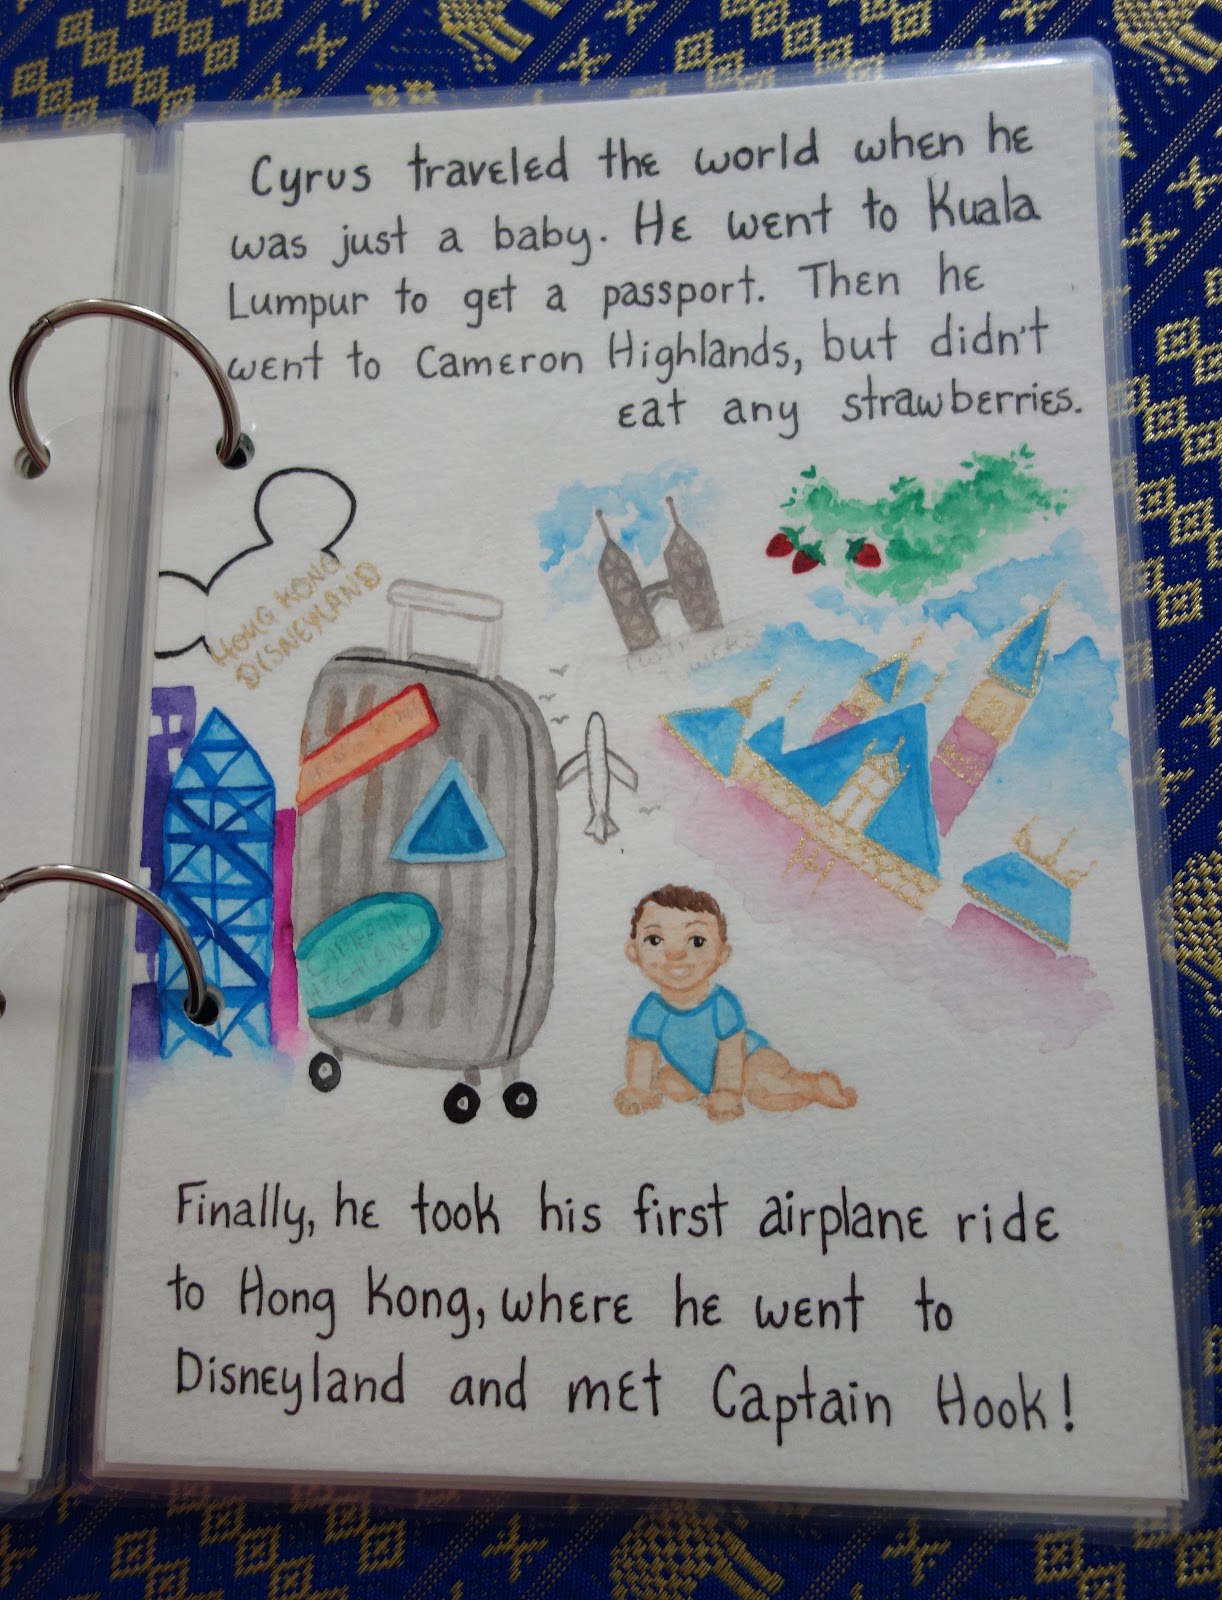 Cyrus traveled the world when he
was just a baby. He went to Kuala
Lumpur to get a passport. Then he
went to Cameron Highlands, but didn't
eat any strawberries.
HONG KONG
DISNEYLAND
TWIN
TOWERS
HIGHLAND
Finally, he took his first airplane ride
to Hong Kong, where he went to
Disneyland and met Captain Hook!